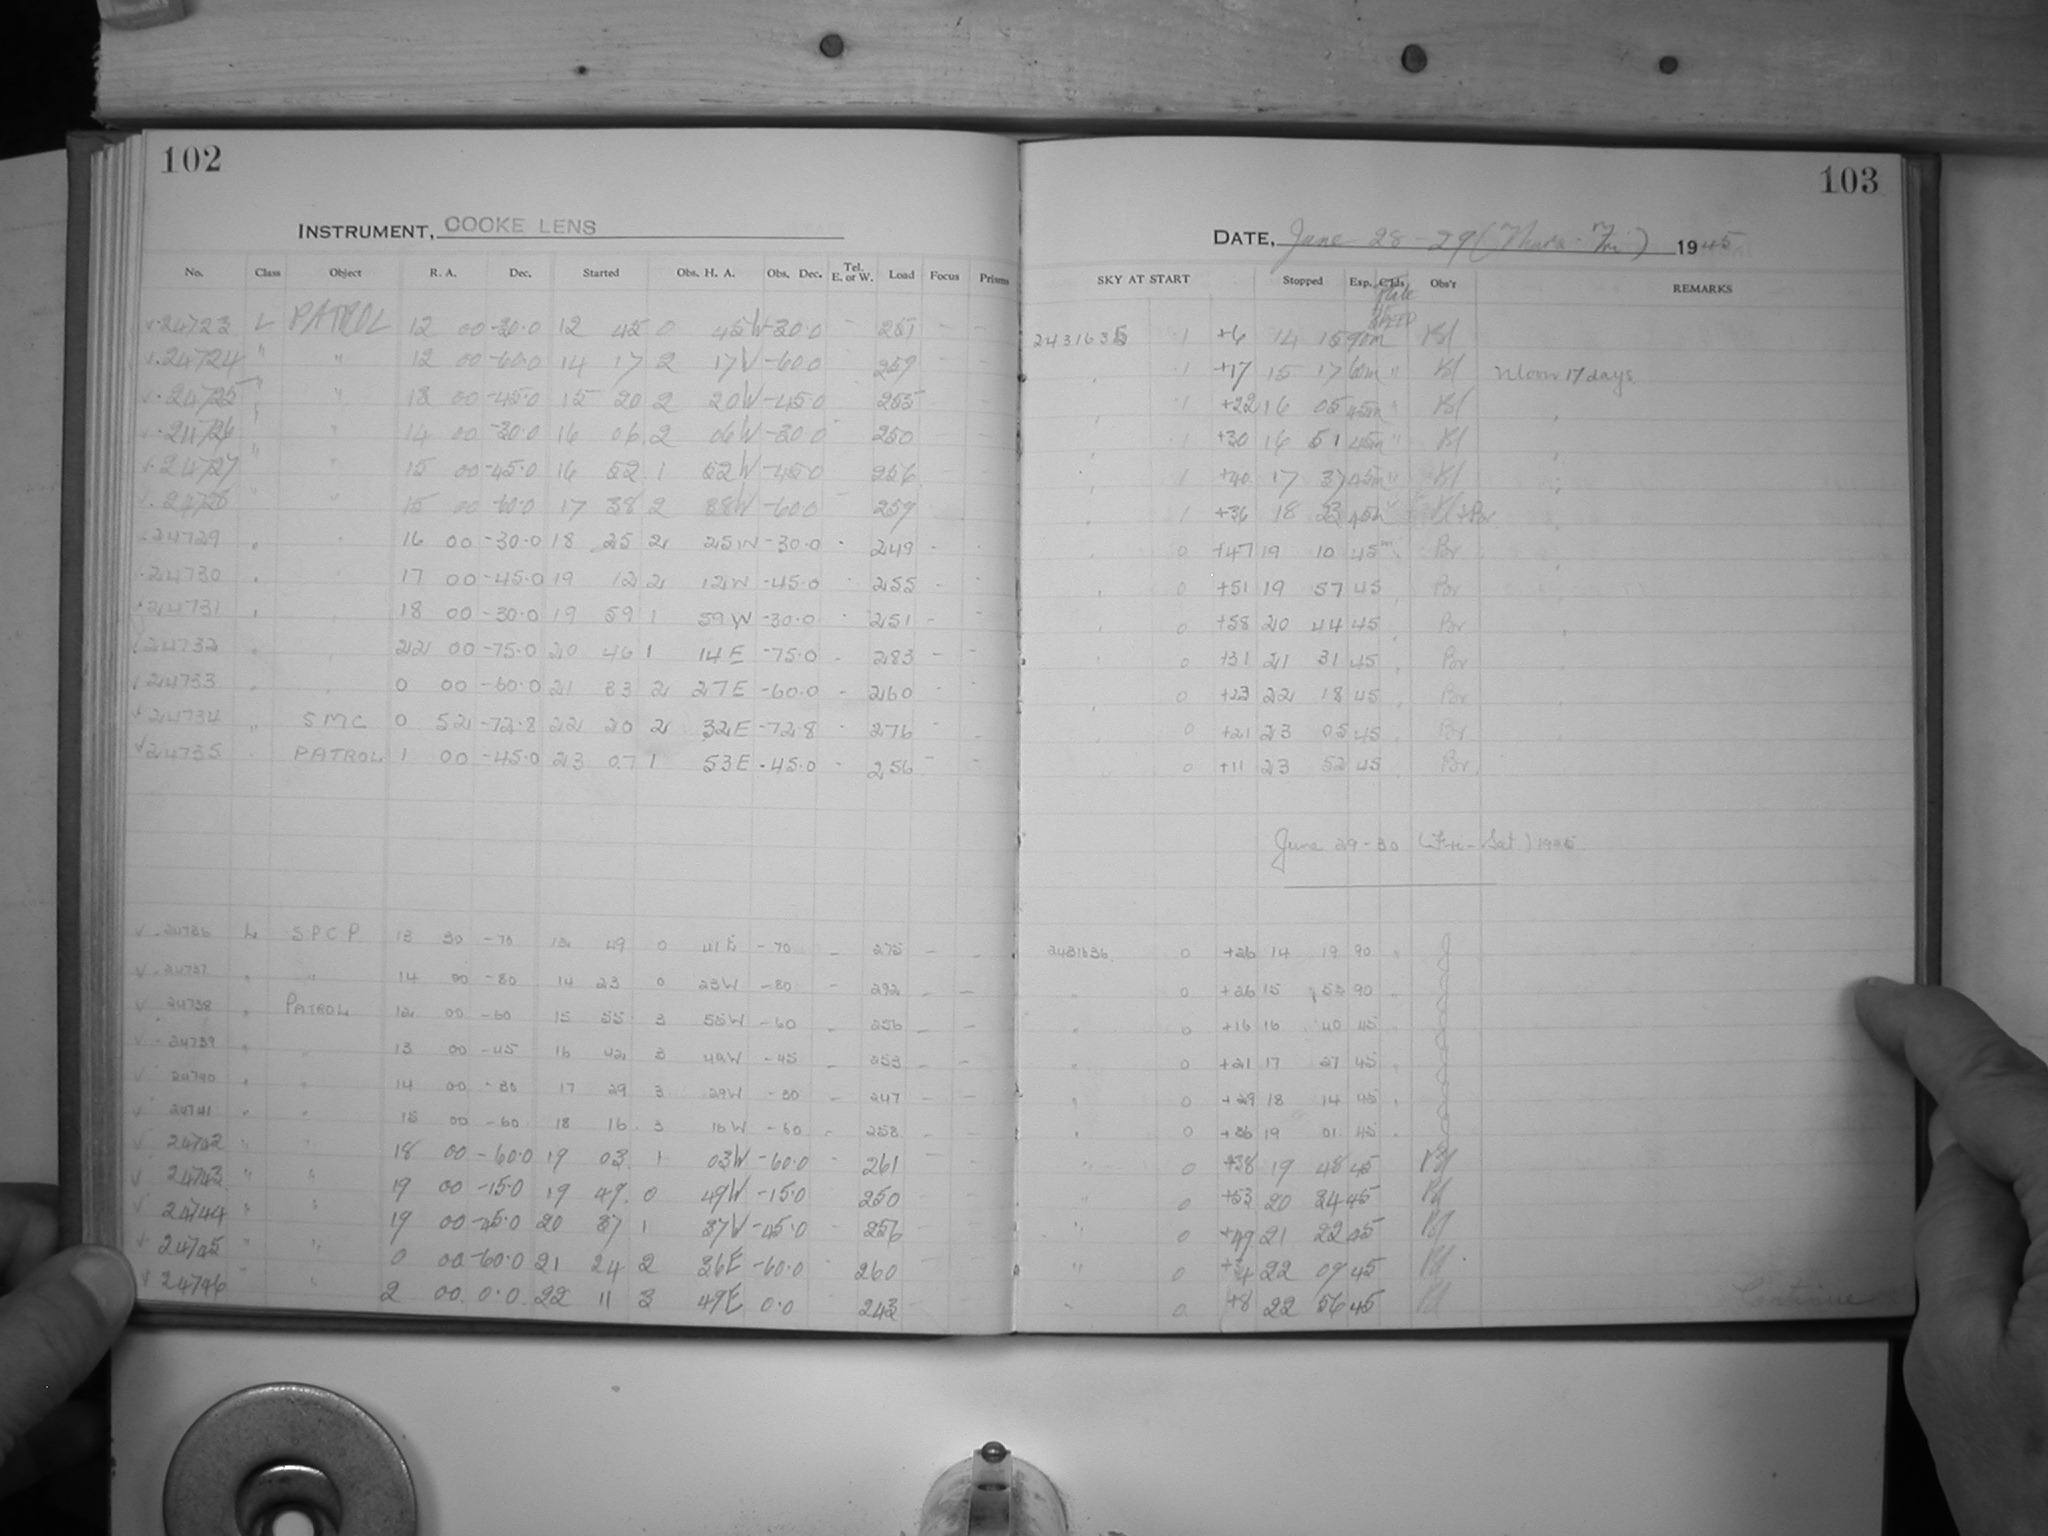 102
103
INSTRUMENT, COOKE LENS
DATE, June 28-29 (Thurs-Fri) 1945
No. Class Object R. A. Dec. Started Obs. H. A. Obs. Dec. Tel. E. or W. Load Focus Prisms SKY AT START Stopped Exp. Obs'r REMARKS
24723 L PATROL 12 00 -30.0 12 45 0 45W -30.0 251 2431635 1 +6 14 15 90m Bl
24724 " " 12 00 -60.0 14 17 2 17W -60.0 259 1 +17 15 17 60m " Bl Moon 17 days.
24725 " " 13 00 -45.0 15 20 2 20W -45.0 255 1 +22 16 05 45m " Bl
24726 " " 14 00 -30.0 16 06 2 06W -30.0 250 1 +30 16 51 45m " Bl
24727 " " 15 00 -45.0 16 52 1 52W -45.0 256 1 +40 17 37 45m " Bl
24728 " " 15 00 -60.0 17 38 2 38W -60.0 259 1 +36 18 23 45m Bl+Br
24729 " " 16 00 -30.0 18 25 2 25W -30.0 249 - 0 +47 19 10 45m Br
24730 " " 17 00 -45.0 19 12 2 12W -45.0 255 - 0 +51 19 57 45 Br
24731 " " 18 00 -30.0 19 59 1 59W -30.0 251 - 0 +58 20 44 45 Br
24732 " " 22 00 -75.0 20 46 1 14E -75.0 - 283 - - 0 +31 21 31 45 Br
24733 " " 0 00 -60.0 21 33 2 27E -60.0 - 260 - 0 +23 22 18 45 Br
24734 " SMC 0 52 -72.8 22 20 2 32E -72.8 - 276 - - 0 +21 23 05 45 Br
24735 " PATROL 1 00 -45.0 23 07 1 53E -45.0 - 256 - - 0 +11 23 52 45 Br
June 29-30 (Fri-Sat) 1945
24736 L SPCP 13 30 -70 12 49 0 41E -70 - 275 - - 2431636 0 +26 14 19 90 J
24737 " " 14 00 -80 14 23 0 23W -80 - 292 - - 0 +26 15 53 90 J
24738 " PATROL 12 00 -60 15 55 3 55W -60 - 256 - - 0 +16 16 40 45 J
24739 " " 13 00 -45 16 42 3 42W -45 - 253 - - 0 +21 17 27 45 J
24740 " " 14 00 -30 17 29 3 29W -30 - 247 - - 0 +29 18 14 45 J
24741 " " 15 00 -60 18 16 3 16W -60 - 258 - - 0 +36 19 01 45 J
24742 " " 18 00 -60.0 19 03 1 03W -60.0 261 " 0 +38 19 48 45 Bl
24743 " " 19 00 -15.0 19 49 0 49W -15.0 250 " 0 +53 20 34 45 Bl
24744 " " 19 00 -45.0 20 37 1 37W -45.0 256 " 0 +49 21 22 45 Bl
24745 " " 0 00 -60.0 21 24 2 36E -60.0 260 " 0 22 09 45 Bl
24746 " " 2 00 0.0 22 11 3 49E 0.0 243 " 0 +8 22 56 45 Bl
Continue